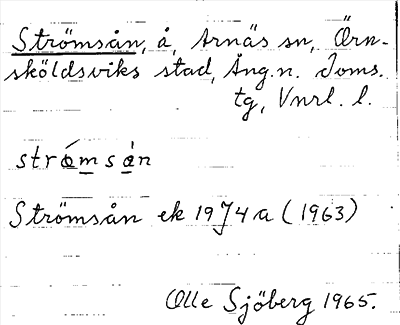 Strömsån, å, Arnäs sn, Örn-
sköldsviks stad, Ång.n. Doms.
tg, Vnrl. l.
strö́msån
Strömsån ek 19J4a (1963)
Olle Sjöberg 1965.